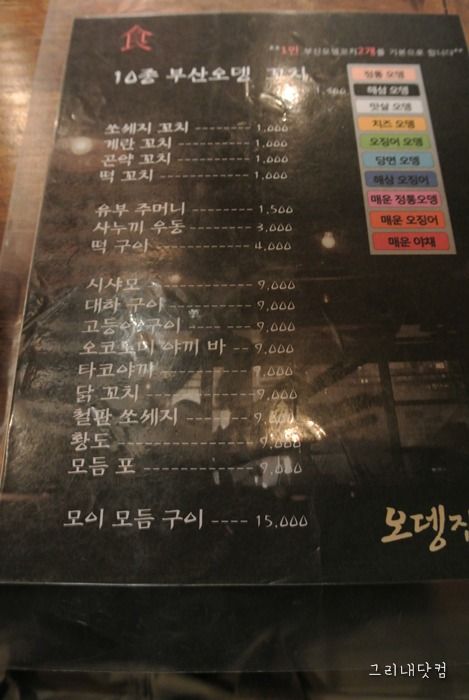 食
**1인 부산오뎅꼬치2개를 기본으로 합니다**
10종 부산오뎅 꼬치
1,500
쏘세지 꼬치 -------- 1,000
계란 꼬치 ---------- 1,000
곤약 꼬치 ---------- 1,000
떡 꼬치 ------------ 1,000
유부 주머니 -------- 1,500
사누끼 우동 -------- 3,000
떡 구이 ------------ 4,000
시샤모 ------------- 9,000
대하 구이 ---------- 9,000
고등어 구이 -------- 9,000
오코노미 야끼 바 -- 9,000
타코야끼 ----------- 9,000
닭 꼬치 ------------ 9,000
철판 쏘세지 -------- 9,000
황도 --------------- 9,000
모듬 포 ------------ 9,000
모이 모듬 구이 ---- 15,000
정통 오뎅
해삼 오뎅
맛살 오뎅
치즈 오뎅
오징어 오뎅
당면 오뎅
해삼 오징어
매운 정통오뎅
매운 오징어
매운 야채
오뎅집
그리내닷컴